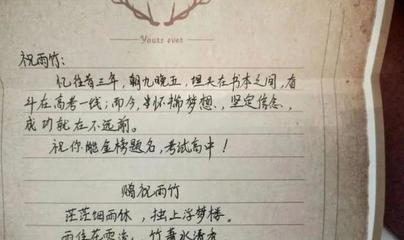 Yours ever
祝雨竹：
忆往昔三年，朝九晚五，埋头在书本之间，奋
斗在高考一线；而今，半怀揣梦想、坚定信念、
成功就在不远前。
祝你能金榜题名，考试高中！
赐祝雨竹
茫茫烟雨休，独上浮梦楼。